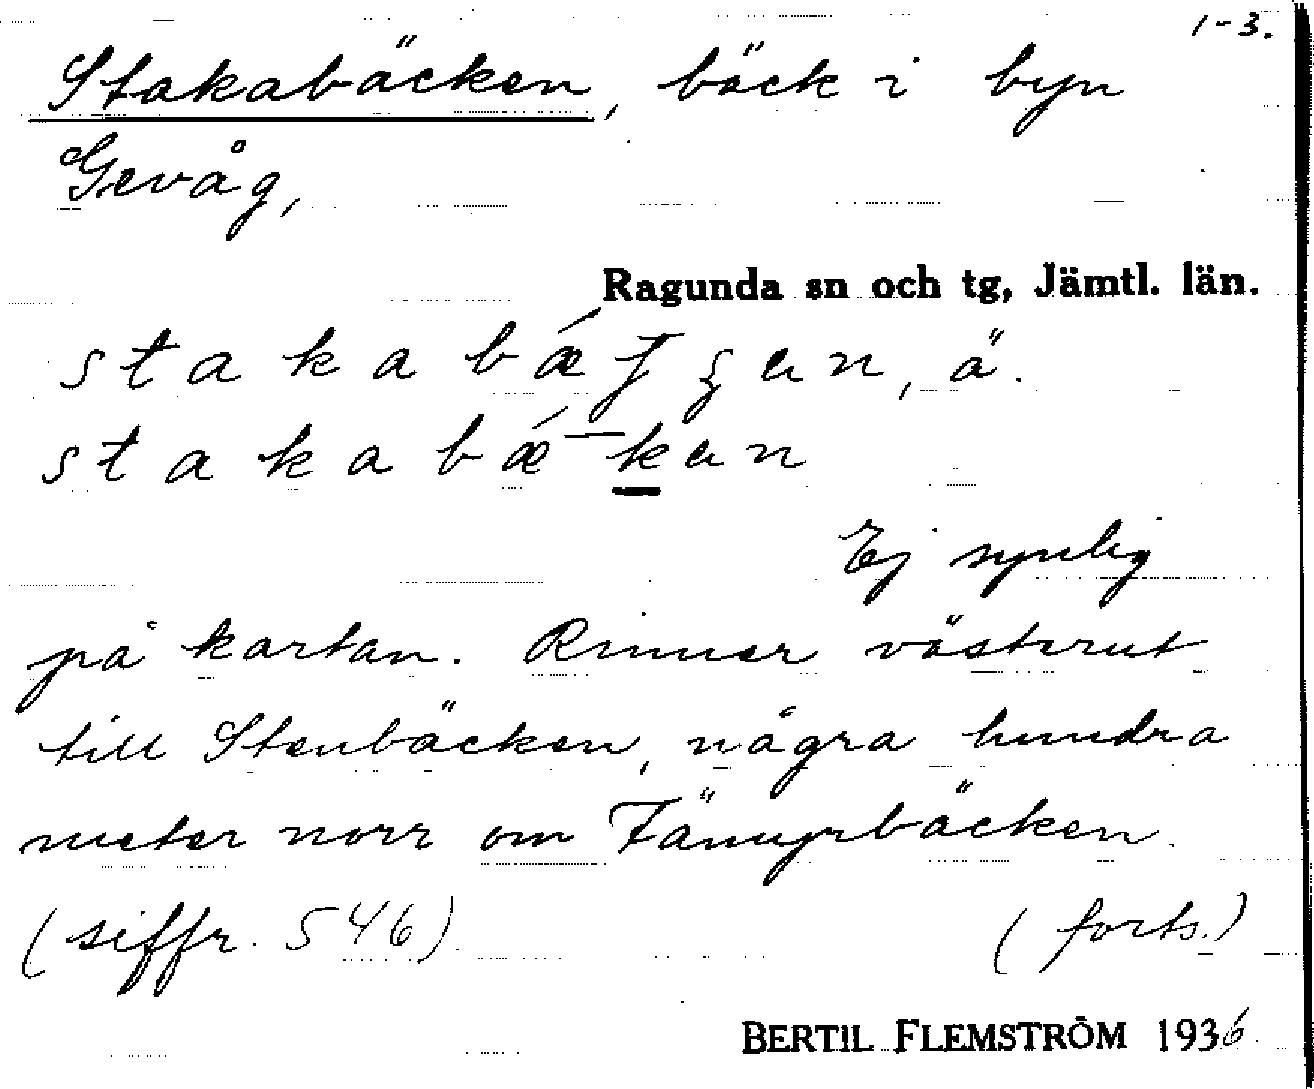 1-3.
Stakabäcken, bäck i byn
Gevåg,
Ragunda sn och tg, Jämtl. län.
ä.
Ej synlig
på kartan. Rinner västerut
till Stenbäcken, några hundra
meter norr om
(siffr. 546) (forts.)
BERTIL FLEMSTRÖM 1936